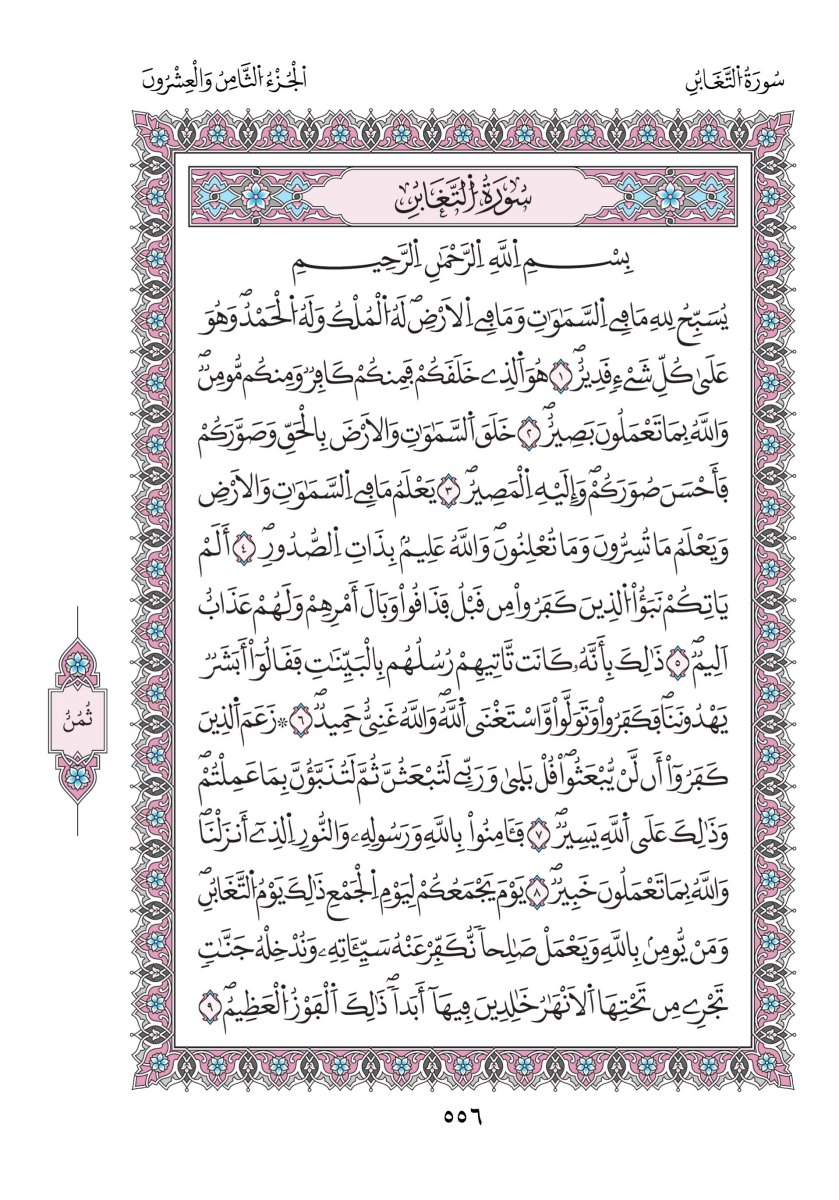 سُورَةُ اُ۬لتَّغَابُنِ
اُ۬لْجُزْءُ اُ۬لثَّامِنُ وَالْعِشْرُونَ
سُورَةُ اُ۬لتَّغَابُنِ
بِسْمِ اِ۬للَّهِ اِ۬لرَّحْمَٰنِ اِ۬لرَّحِيمِ
يُسَبِّحُ لِلهِ مَا فِے اِ۬لسَّمَٰوَٰتِ وَمَا فِے اِ۬لَارْضِۖ لَهُ اُ۬لْمُلْكُ وَلَهُ اُ۬لْحَمْدُۖ وَهُوَ
عَلَىٰ كُلِّ شَےْءٖ قَدِيرٌۖ ١ هُوَ اَ۬لذِے خَلَقَكُمْ فَمِنكُمْ كَافِرٞ وَمِنكُم مُّومِنٞۖ
وَاللَّهُ بِمَا تَعْمَلُونَ بَصِيرٌۖ ٢ خَلَقَ اَ۬لسَّمَٰوَٰتِ وَالَارْضَ بِالْحَقِّ وَصَوَّرَكُمْ
فَأَحْسَنَ صُوَرَكُمْۖ وَإِلَيْهِ اِ۬لْمَصِيرُۖ ٣ يَعْلَمُ مَا فِے اِ۬لسَّمَٰوَٰتِ وَالَارْضِ
وَيَعْلَمُ مَا تُسِرُّونَ وَمَا تُعْلِنُونَۖ وَاللَّهُ عَلِيمُۢ بِذَاتِ اِ۬لصُّدُورِۖ ٤ أَلَمْ
يَاتِكُمْ نَبَؤُاْ اُ۬لذِينَ كَفَرُواْ مِن قَبْلُ فَذَاقُواْ وَبَالَ أَمْرِهِمْ وَلَهُمْ عَذَابٌ
اَلِيمٌۖ ٥ ذَٰلِكَ بِأَنَّهُۥ كَانَت تَّاتِيهِمْ رُسُلُهُم بِالْبَيِّنَٰتِ فَقَالُوٓاْ أَبَشَرٞ
يَهْدُونَنَاۖ فَكَفَرُواْ وَتَوَلَّواْۖ وَّاسْتَغْنَى اَ۬للَّهُۖ وَاللَّهُ غَنِيٌّ حَمِيدٞۖ ٦ ۞ زَعَمَ اَ۬لذِينَ
كَفَرُوٓاْ أَن لَّنْ يُّبْعَثُواْۖ قُلْ بَلَىٰ وَرَبِّے لَتُبْعَثُنَّ ثُمَّ لَتُنَبَّؤُنَّ بِمَا عَمِلْتُمْۖ
وَذَٰلِكَ عَلَى اَ۬للَّهِ يَسِيرٞۖ ٧ فَـَٔامِنُواْ بِاللَّهِ وَرَسُولِهِۦ وَالنُّورِ اِ۬لذِےٓ أَنزَلْنَاۖ
وَاللَّهُ بِمَا تَعْمَلُونَ خَبِيرٞۖ ٨ يَوْمَ يَجْمَعُكُمْ لِيَوْمِ اِ۬لْجَمْعِ ذَٰلِكَ يَوْمُ اُ۬لتَّغَابُنِۖ
وَمَنْ يُّومِنۢ بِاللَّهِ وَيَعْمَلْ صَٰلِحاٗ نُّكَفِّرْ عَنْهُ سَيِّـَٔاتِهِۦ وَنُدْخِلْهُ جَنَّٰتٖ
تَجْرِے مِن تَحْتِهَا اَ۬لَانْهَٰرُ خَٰلِدِينَ فِيهَآ أَبَداٗۖ ذَٰلِكَ اَ۬لْفَوْزُ اُ۬لْعَظِيمُۖ ٩
ثُمُنُ
٥٥٦